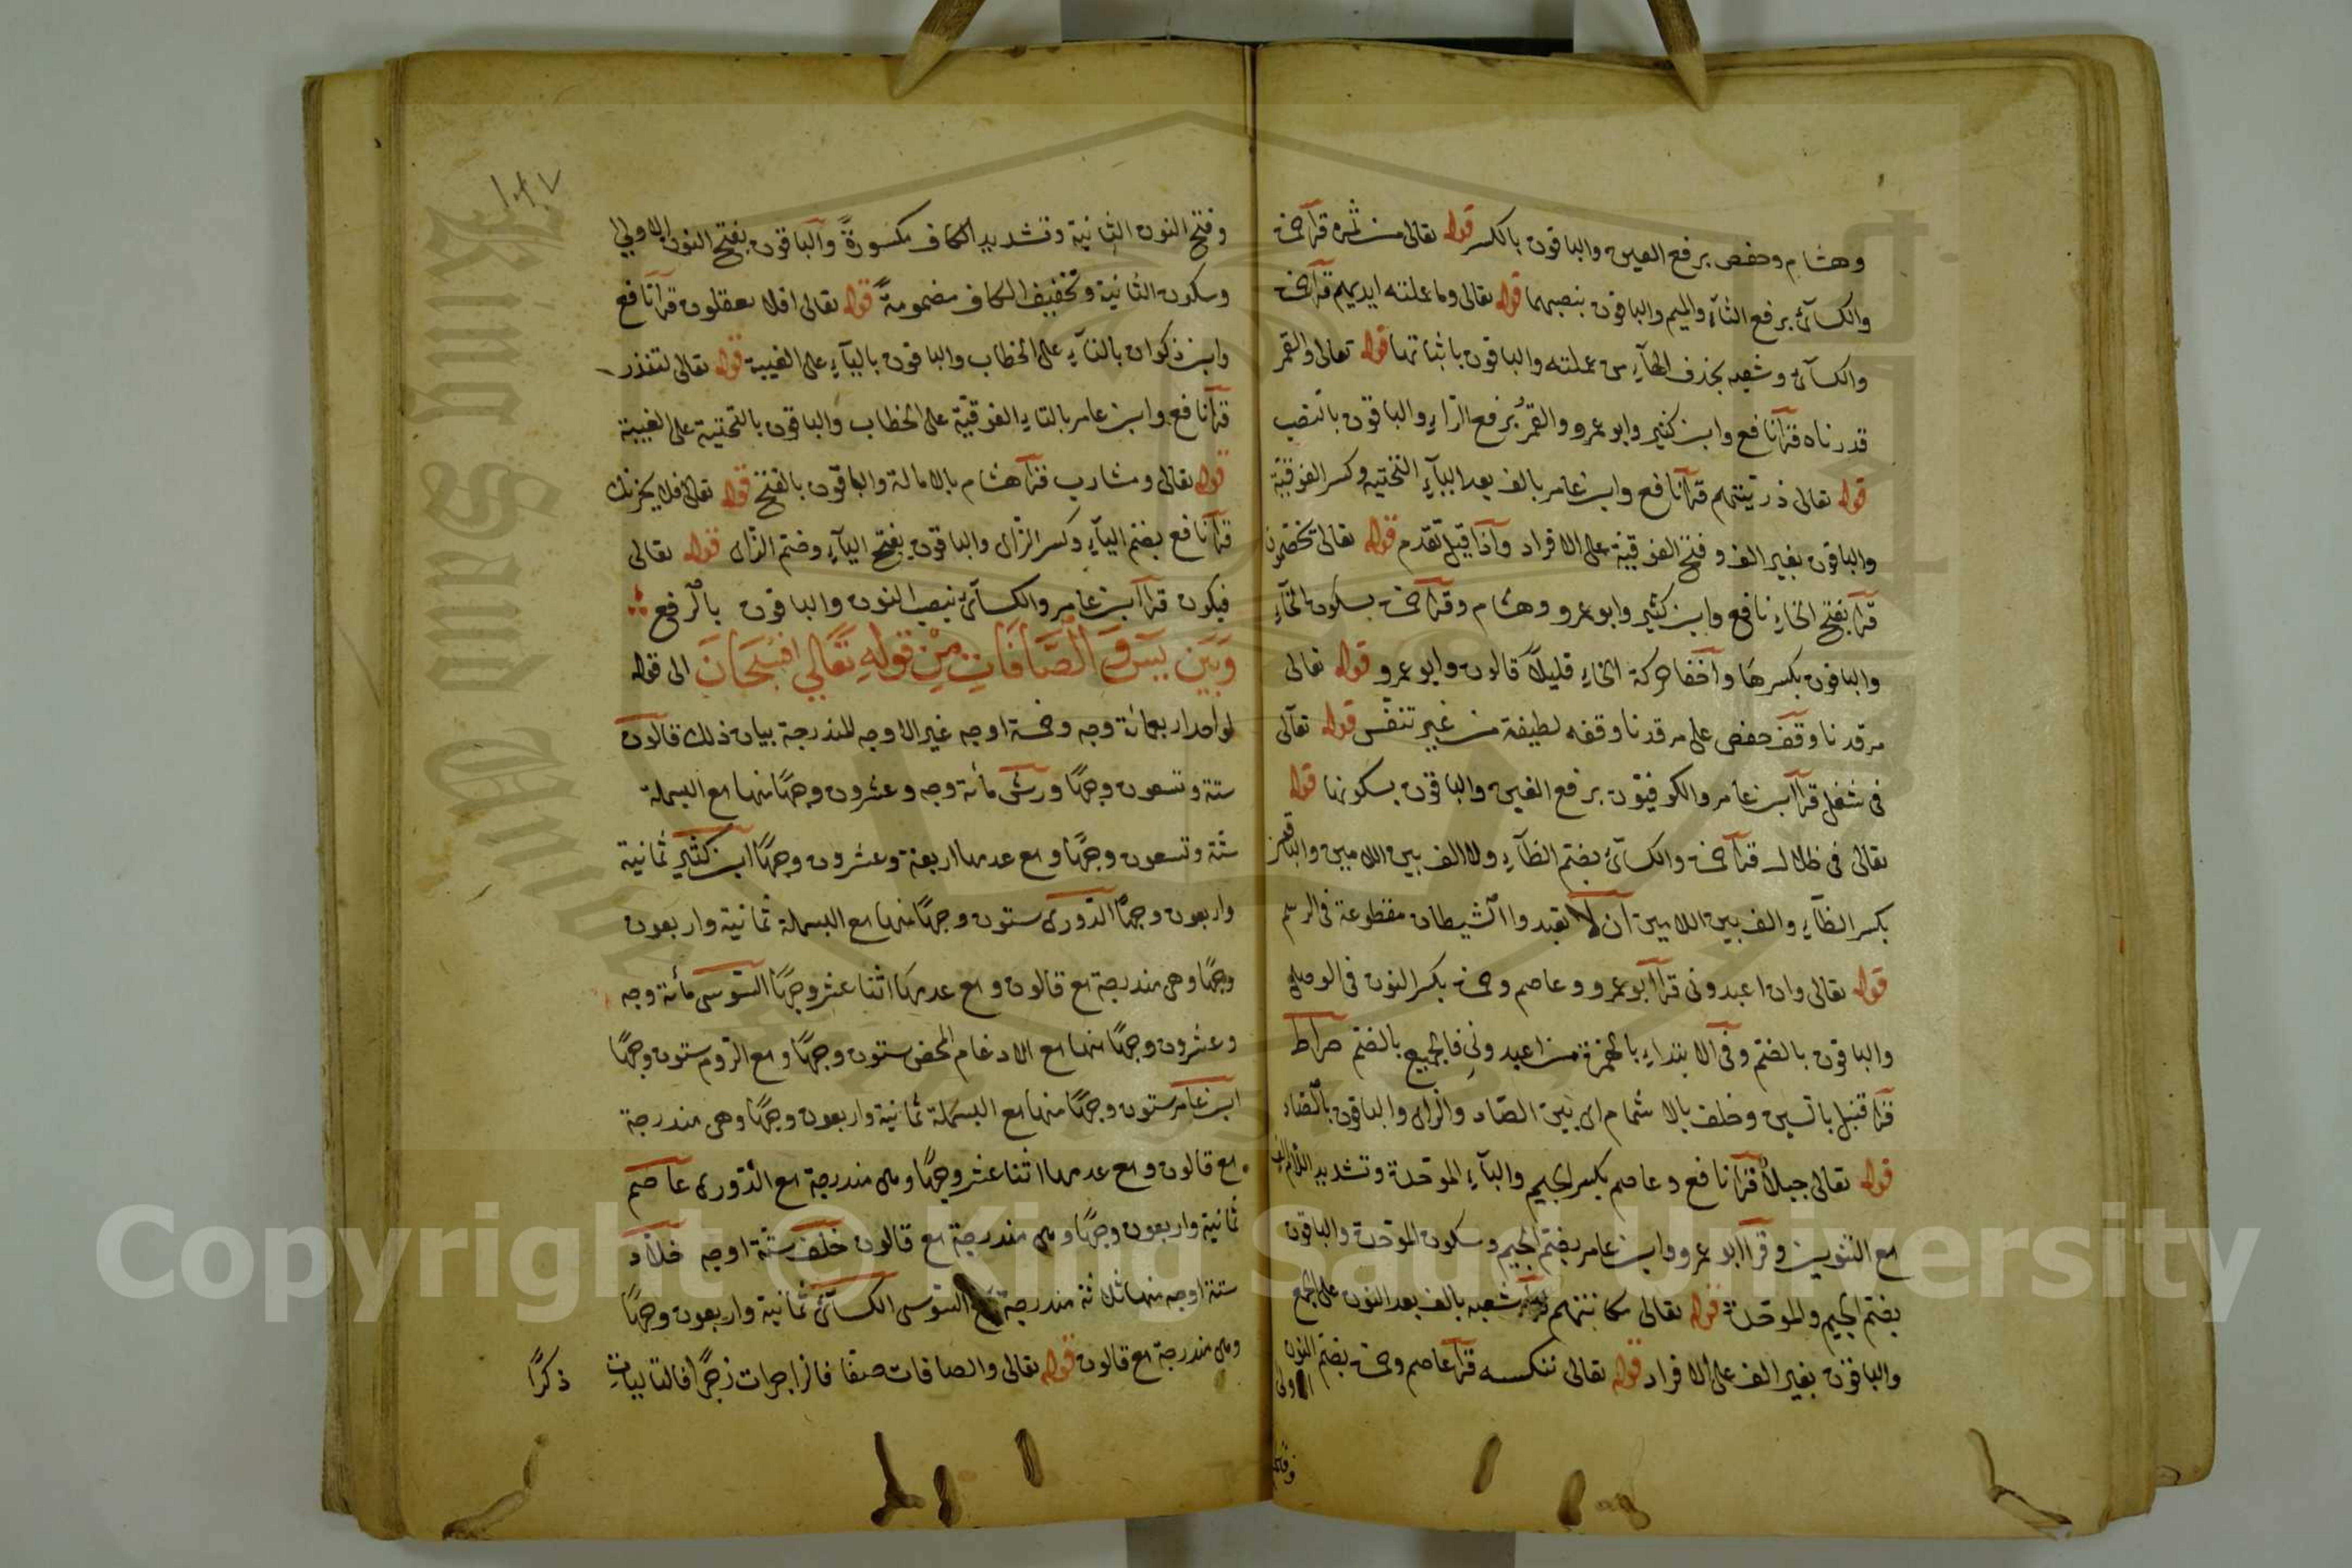 وهشام وحفص برفع العين والباقون بالكسر قوله تعالى من ثمره قرأ حمزة
والكسآئى برفع الثآء والميم والباقون بنصبهما قوله تعالى وما عملته ايديهم قرأ حمزة
والكسآئ وشعبه بحذف الهآء من عملته والباقون باثباتها قوله تعالى والقمر
قدرناه قرأ نافع وابن كثير وابو عمرو والقمر برفع الرآء والباقون بالنصب
قوله تعالى ذريتهم قرأ نافع وابن عامر بالف بعد اليآء التحتيه وكسر الفوقية
والباقون بغير الف وفتح الفوقية على الافراد وآذا قيل تقدم قوله تعالى يخصمون
قرأ بفتح الخاء نافع وابن كثير وابو عمرو وهشام وقرأ حمزة بسكون الخآء
والباقون بكسرها وآخفا حركة الخاء قليلاً قالون وابو عمرو قوله تعالى
مرقدنا وقف حفص على مرقدنا وقفه لطيفة من غير تنفس قوله تعآلى
فى شغل قرأ ابن عامر والكوفيون برفع الغين والباقون بسكونها قوله
تعالى فى ظلال قرأ حمزة والكسآئ بضم الظآء ولا الف بين اللامين والباقون
بكسر الظآء والف بين اللامين آن لآ تعبدوا الشيطان مقطوعة فى الرسم
قوله تعالى وان اعبدونى قرأ ابو عمرو وعاصم وحمزة بكسر النون فى الوصل
والباقون بالضم وفى الابتداء بالهمزة من اعبدونى فالجميع بالضم صراط
قرأ قنبل بالسين وخلف بالاشمام اى بين الصاد والزاى والباقون بالصاد
قوله تعالى جبلاً قرأ نافع وعاصم بكسر الجيم والبآء الموحدة وتشديد اللام الف
مع التنوين وقرأ ابو عمرو وابن عامر بضم الجيم وسكون الموحدة والباقون
بضم الجيم والموحدة قوله تعالى مكانتهم قرأ شعبه بالف بعد النون على الجمع
والباقون بغير الف على الافراد قوله تعالى ننكسه قرأ عاصم وحمزة بضم النون
الاولى
وفتح
وفتح النون الثانية وتشديد الكاف مكسورةً والباقون بفتح النون الاولى
وسكون الثانية وتخفيف الكاف مضمومةً قوله تعالى افلا يعقلون قرأ نافع
وابن ذكوان بالتآء على الخطاب والباقون باليآء على الغيبة قوله تعالى لتنذر
قرأ نافع وابن عامر بالتاء الفوقية على الخطاب والباقون بالتحتية على الغيبة
قوله تعالى ومشارب قرأ هشام بالامالة والباقون بالفتح قوله تعالى فلا يحزنك
قرأ نافع بضم اليآء وكسر الزاى والباقون بفتح اليآء وضم الزاى قوله تعالى
فيكون قرأ ابن عامر والكسآئى بنصب النون والباقون بالرفع
وَبَيَن يسَ وَ الصَّافَاتِ مِنْ قولهِ تعَالى فَسُبْحَانَ الى قوله
لواحد اربعمائة وجه وخمسة اوجه غير الاوجه المندرجة بيان ذلك قالون
ستة وتسعون وجهًا ورش مائة وجه وعشرون وجهًا منها مع البسملة
ستة وتسعون وجهًا ومع عدمها اربعة وعشرون وجهًا ابن كثير ثمانية
واربعون وجهًا الدورى ستون وجهًا منها مع البسملة ثمانية واربعون
وجهًا وهى مندرجة مع قالون ومع عدمها اثنا عشر وجهًا السوسى مائة وجه
وعشرون وجهًا منها مع الادغام المحض ستون وجهًا ومع الروم ستون وجهًا
ابن عامر ستون وجهًا منها مع البسملة ثمانية واربعون وجهًا وهى مندرجة
مع قالون ومع عدمها اثنا عشر وجهًا وهى مندرجة مع الدورى عاصم
ثمانية واربعون وجهًا وهى مندرجة مع قالون خلف ستة اوجه خلاد
ستة اوجه منها ثلاثة مندرجة مع السوسى الكسآئى ثمانية واربعون وجهًا
وهى مندرجة مع قالون قوله تعالى والصافات صفا فالزاجرات زجرًا فالتاليات
ذكرًا
Copyright © King Saud University
King Saud University